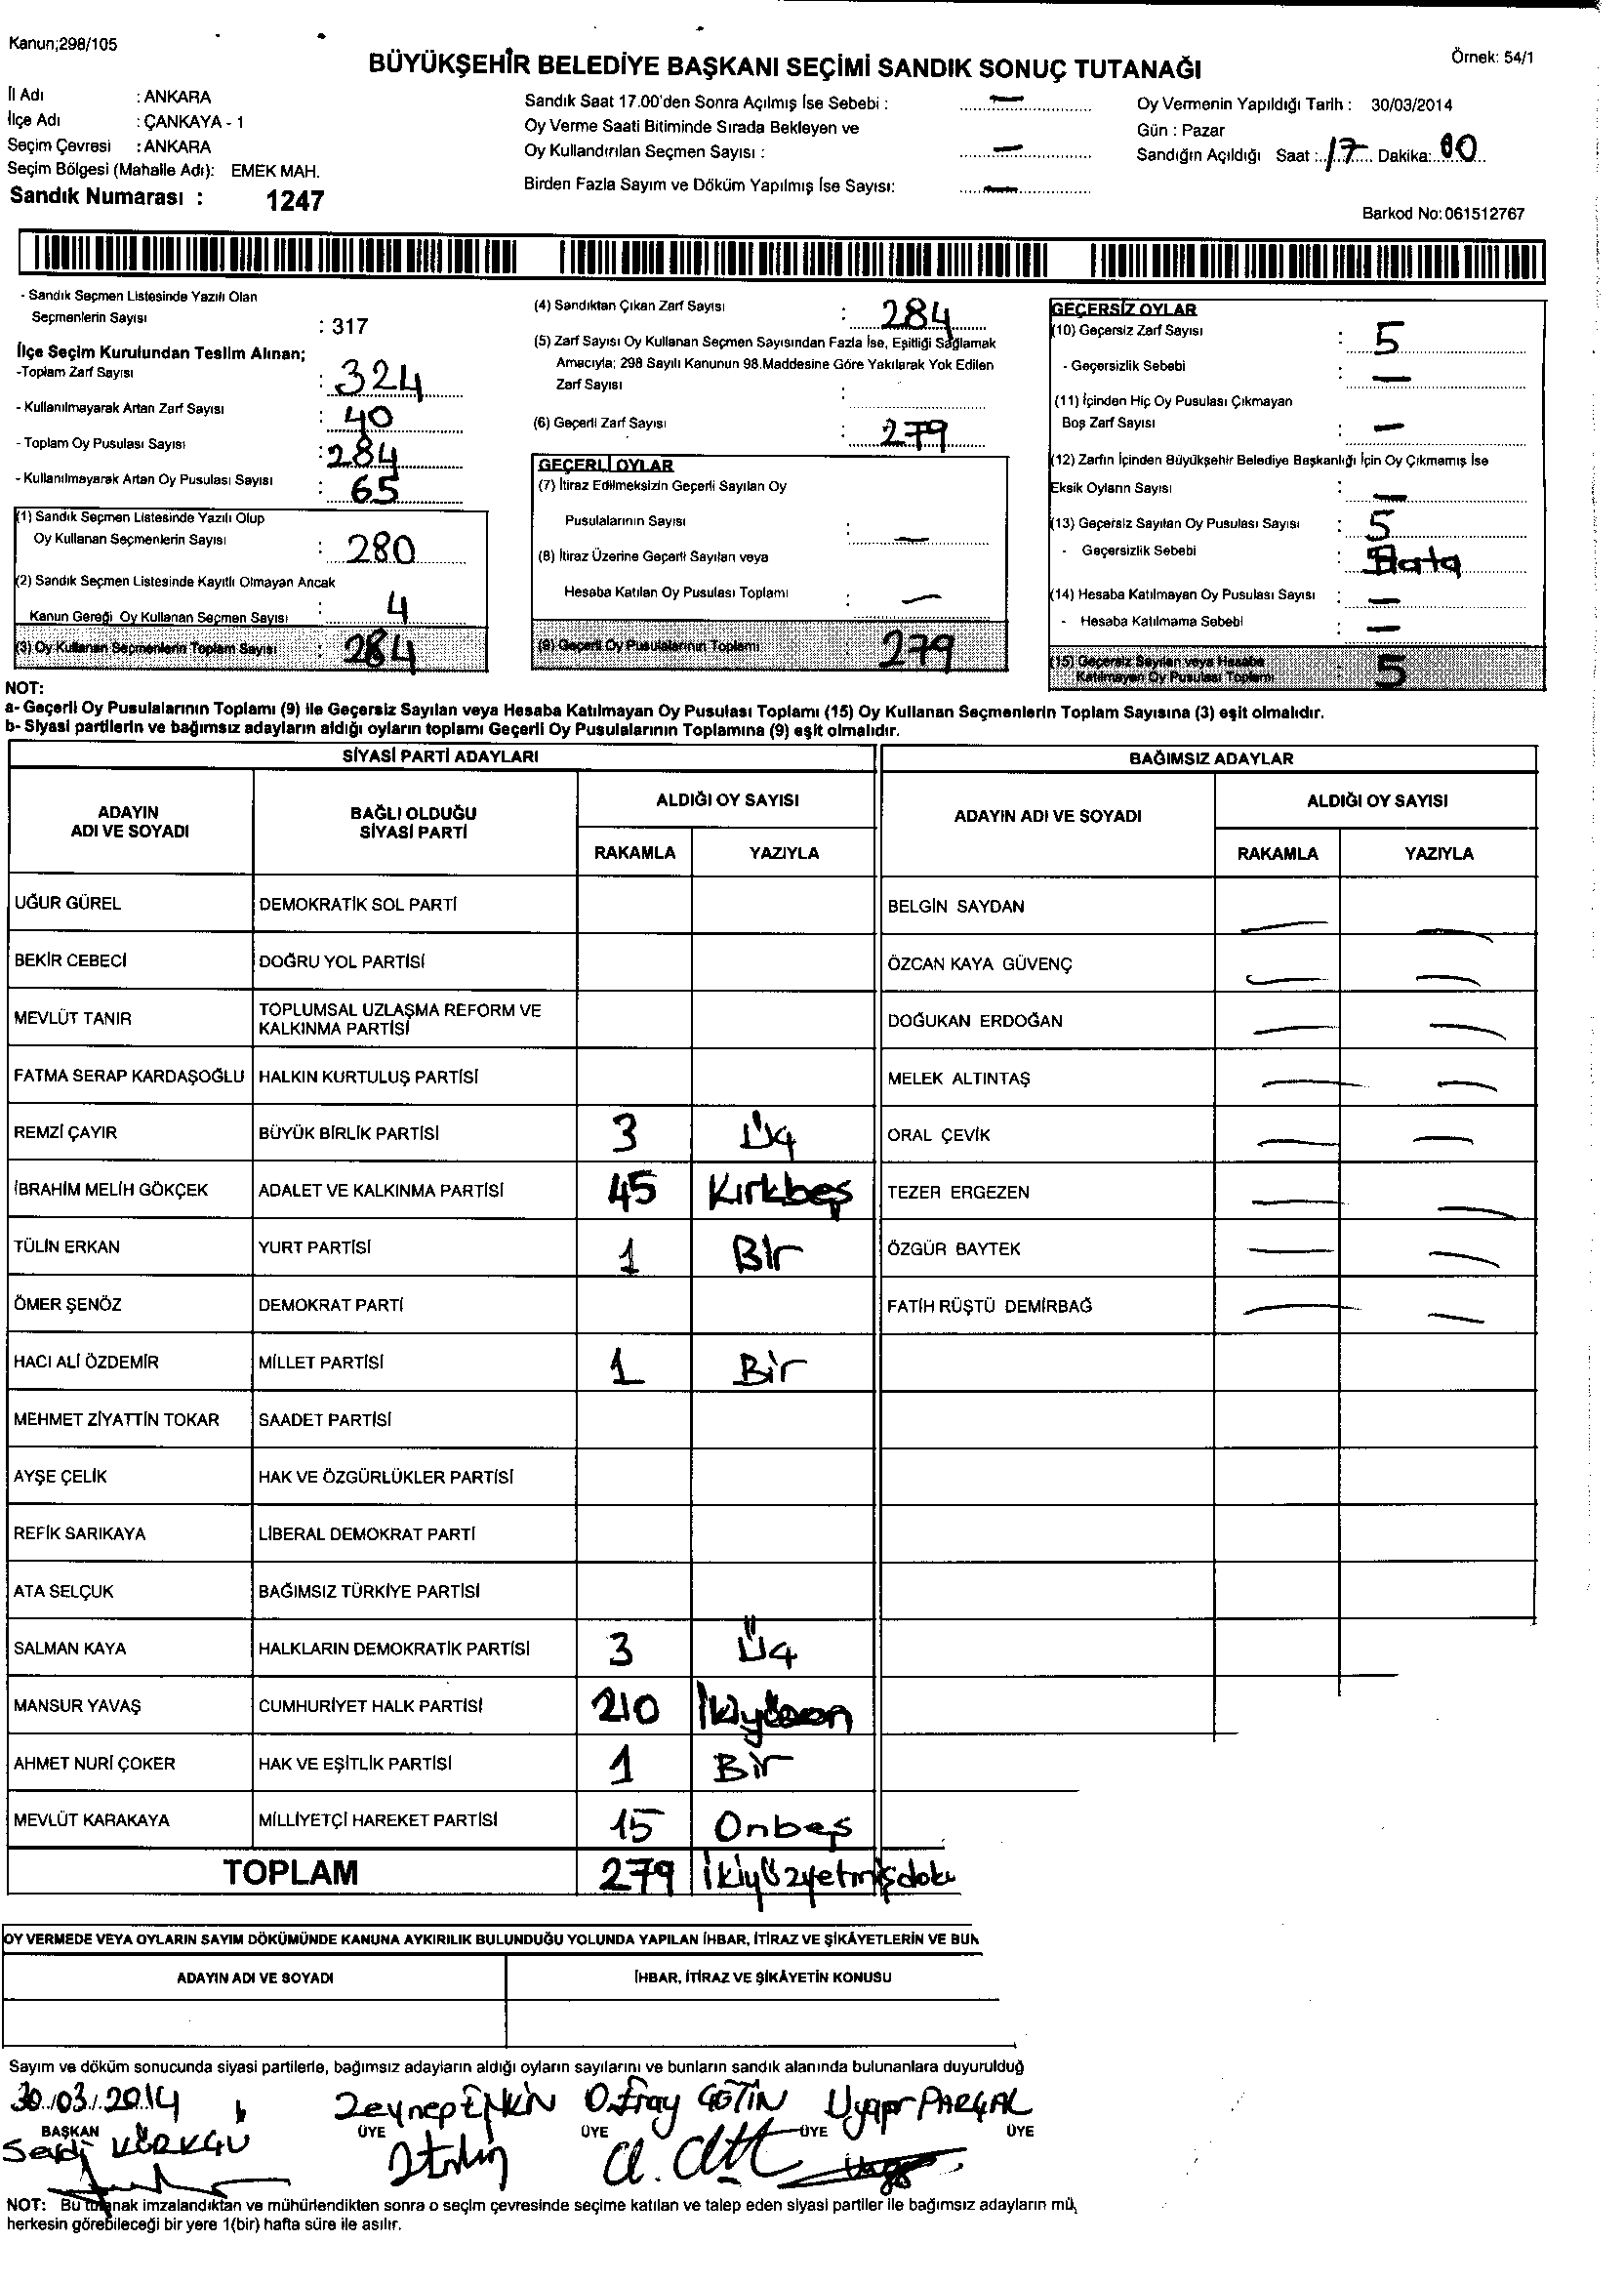 Kanun;298/105
Örnek: 54/1
BÜYÜKŞEHİR BELEDİYE BAŞKANI SEÇİMİ SANDIK SONUÇ TUTANAĞI
İl Adı : ANKARA
İlçe Adı : ÇANKAYA - 1
Seçim Çevresi : ANKARA
Seçim Bölgesi (Mahalle Adı): EMEK MAH.
Sandık Numarası : 1247
Sandık Saat 17.00'den Sonra Açılmış İse Sebebi : —
Oy Verme Saati Bitiminde Sırada Bekleyen ve
Oy Kullandırılan Seçmen Sayısı : —
Birden Fazla Sayım ve Döküm Yapılmış İse Sayısı: —
Oy Vermenin Yapıldığı Tarih : 30/03/2014
Gün : Pazar
Sandığın Açıldığı Saat : 17 Dakika: 00
Barkod No: 061512767
- Sandık Seçmen Listesinde Yazılı Olan
Seçmenlerin Sayısı : 317
İlçe Seçim Kurulundan Teslim Alınan;
-Toplam Zarf Sayısı : 324
- Kullanılmayarak Artan Zarf Sayısı : 40
- Toplam Oy Pusulası Sayısı : 284
- Kullanılmayarak Artan Oy Pusulası Sayısı : 65
(1) Sandık Seçmen Listesinde Yazılı Olup
Oy Kullanan Seçmenlerin Sayısı : 280
(2) Sandık Seçmen Listesinde Kayıtlı Olmayan Ancak
Kanun Gereği Oy Kullanan Seçmen Sayısı : 4
(3) Oy Kullanan Seçmenlerin Toplam Sayısı : 284
(4) Sandıktan Çıkan Zarf Sayısı : 284
(5) Zarf Sayısı Oy Kullanan Seçmen Sayısından Fazla İse, Eşitliği Sağlamak
Amacıyla; 298 Sayılı Kanunun 98.Maddesine Göre Yakılarak Yok Edilen
Zarf Sayısı :
(6) Geçerli Zarf Sayısı : 279
GEÇERLİ OYLAR
(7) İtiraz Edilmeksizin Geçerli Sayılan Oy
Pusulalarının Sayısı : —
(8) İtiraz Üzerine Geçerli Sayılan veya
Hesaba Katılan Oy Pusulası Toplamı : —
(9) Geçerli Oy Pusulalarının Toplamı : 279
GEÇERSİZ OYLAR
(10) Geçersiz Zarf Sayısı : 5
- Geçersizlik Sebebi : —
(11) İçinden Hiç Oy Pusulası Çıkmayan
Boş Zarf Sayısı : —
(12) Zarfın İçinden Büyükşehir Belediye Başkanlığı İçin Oy Çıkmamış İse
Eksik Oyların Sayısı : —
(13) Geçersiz Sayılan Oy Pusulası Sayısı : 5
- Geçersizlik Sebebi : Hata
(14) Hesaba Katılmayan Oy Pusulası Sayısı : —
- Hesaba Katılmama Sebebi : —
(15) Geçersiz Sayılan veya Hesaba
Katılmayan Oy Pusulası Toplamı : 5
NOT:
a- Geçerli Oy Pusulalarının Toplamı (9) ile Geçersiz Sayılan veya Hesaba Katılmayan Oy Pusulası Toplamı (15) Oy Kullanan Seçmenlerin Toplam Sayısına (3) eşit olmalıdır.
b- Siyasi partilerin ve bağımsız adayların aldığı oyların toplamı Geçerli Oy Pusulalarının Toplamına (9) eşit olmalıdır.
SİYASİ PARTİ ADAYLARI
ADAYIN ADI VE SOYADI BAĞLI OLDUĞU SİYASİ PARTİ ALDIĞI OY SAYISI
RAKAMLA YAZIYLA
UĞUR GÜREL DEMOKRATİK SOL PARTİ
BEKİR CEBECİ DOĞRU YOL PARTİSİ
MEVLÜT TANIR TOPLUMSAL UZLAŞMA REFORM VE KALKINMA PARTİSİ
FATMA SERAP KARDAŞOĞLU HALKIN KURTULUŞ PARTİSİ
REMZİ ÇAYIR BÜYÜK BİRLİK PARTİSİ 3 Üç
İBRAHİM MELİH GÖKÇEK ADALET VE KALKINMA PARTİSİ 45 Kırkbeş
TÜLİN ERKAN YURT PARTİSİ 1 Bir
ÖMER ŞENÖZ DEMOKRAT PARTİ
HACI ALİ ÖZDEMİR MİLLET PARTİSİ 1 Bir
MEHMET ZİYATTİN TOKAR SAADET PARTİSİ
AYŞE ÇELİK HAK VE ÖZGÜRLÜKLER PARTİSİ
REFİK SARIKAYA LİBERAL DEMOKRAT PARTİ
ATA SELÇUK BAĞIMSIZ TÜRKİYE PARTİSİ
SALMAN KAYA HALKLARIN DEMOKRATİK PARTİSİ 3 Üç
MANSUR YAVAŞ CUMHURİYET HALK PARTİSİ 210 İkiyüzon
AHMET NURİ ÇOKER HAK VE EŞİTLİK PARTİSİ 1 Bir
MEVLÜT KARAKAYA MİLLİYETÇİ HAREKET PARTİSİ 15 Onbeş
TOPLAM 279 İkiyüzyetmişdoku
BAĞIMSIZ ADAYLAR
ADAYIN ADI VE SOYADI ALDIĞI OY SAYISI
RAKAMLA YAZIYLA
BELGİN SAYDAN — —
ÖZCAN KAYA GÜVENÇ — —
DOĞUKAN ERDOĞAN — —
MELEK ALTINTAŞ — —
ORAL ÇEVİK — —
TEZER ERGEZEN — —
ÖZGÜR BAYTEK — —
FATİH RÜŞTÜ DEMİRBAĞ — —
OY VERMEDE VEYA OYLARIN SAYIM DÖKÜMÜNDE KANUNA AYKIRILIK BULUNDUĞU YOLUNDA YAPILAN İHBAR, İTİRAZ VE ŞİKÂYETLERİN VE BUN
ADAYIN ADI VE SOYADI İHBAR, İTİRAZ VE ŞİKÂYETİN KONUSU
Sayım ve döküm sonucunda siyasi partilerle, bağımsız adayların aldığı oyların sayılarını ve bunların sandık alanında bulunanlara duyurulduğ
30/03/2014 Zeynep ÇETİN Uygar
BAŞKAN ÜYE ÜYE ÜYE ÜYE
NOT: Bu tutanak imzalandıktan ve mühürlendikten sonra o seçim çevresinde seçime katılan ve talep eden siyasi partiler ile bağımsız adayların mü
herkesin görebileceği bir yere 1(bir) hafta süre ile asılır.